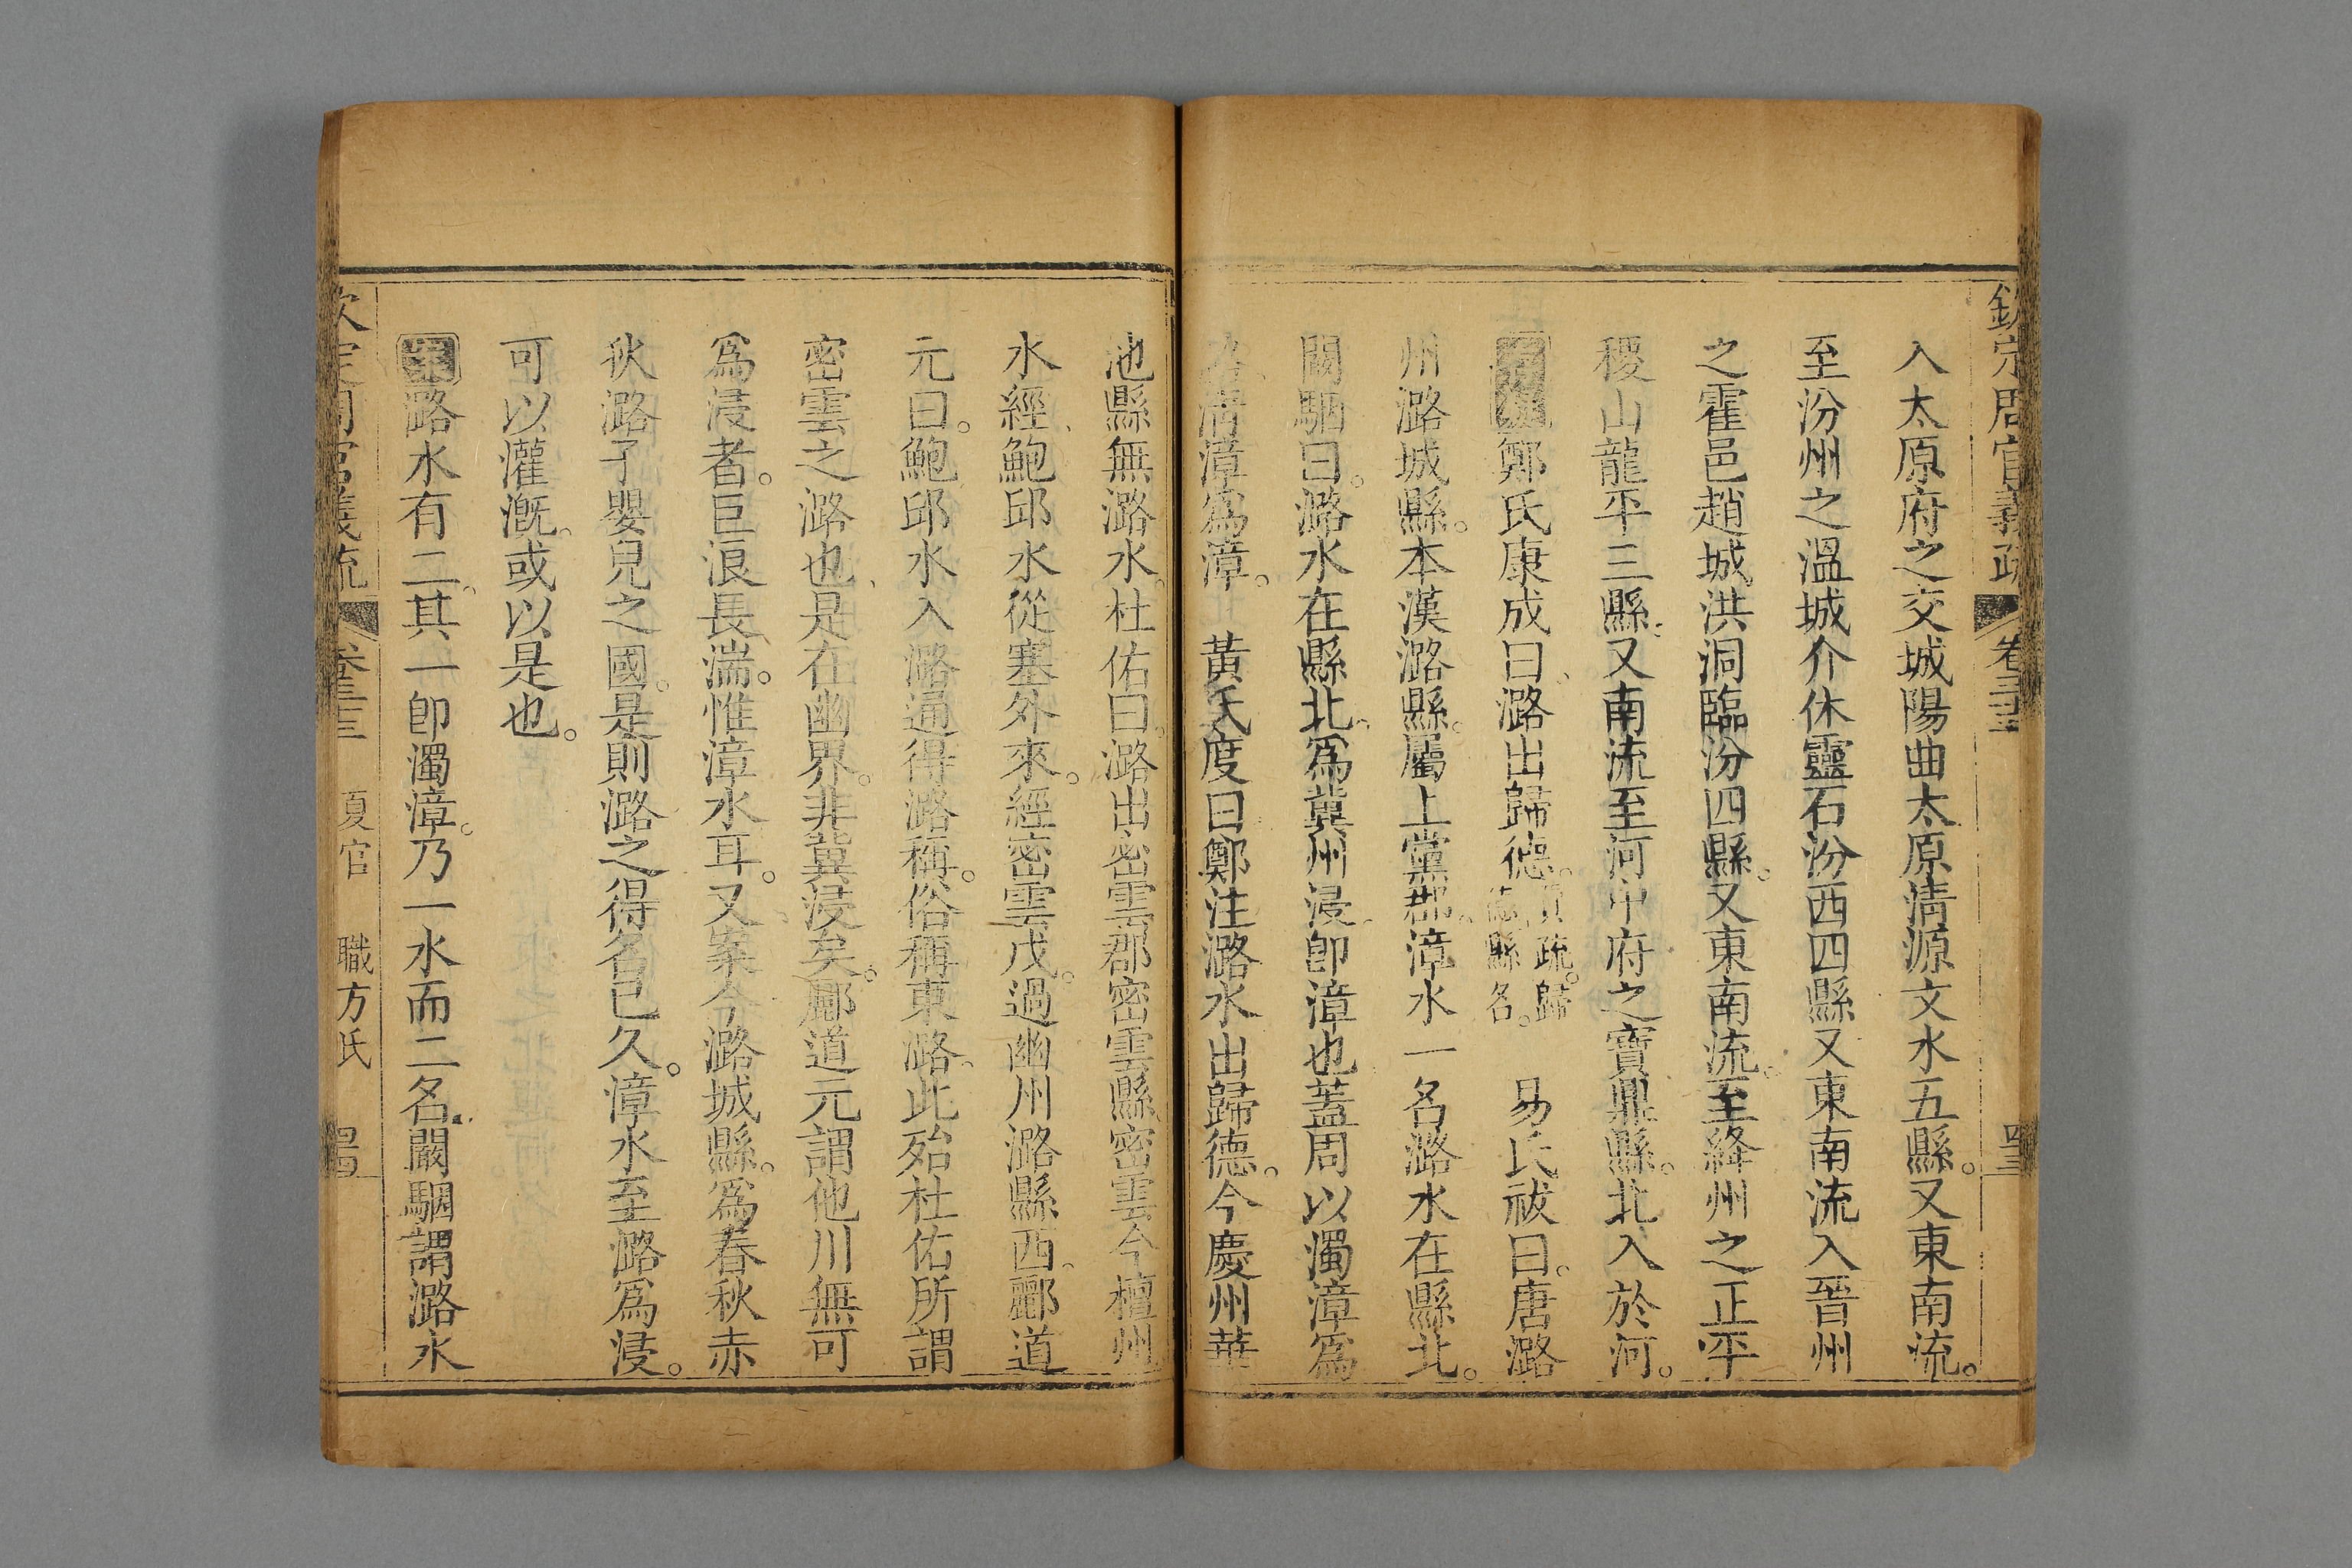 欽定周官義疏 卷三十三
入太原府之交城陽曲太原淸源文水五縣。又東南流。
至汾州之溫城介休靈石汾西四縣又東南流入晉州
之霍邑趙城洪洞臨汾四縣。又東南流。至絳州之正平
稷山龍平三縣、又南流至河中府之寶鼎縣。北入於河。
鄭氏康成曰、潞出歸德。賈疏。歸德縣名。 易氏祓曰。唐潞
州潞城縣。本漢潞縣。屬上黨郡。漳水一名潞水在縣北。
闞駰曰。潞水在縣北。爲冀州浸、卽漳也蓋周以濁漳爲
潞淸漳爲漳。 黃氏度曰鄭注潞水出歸德。今慶州華
池縣無潞水。杜佑曰。潞出密雲郡密雲縣密雲今檀州
水經、鮑邱水從塞外來。經密雲戍。過幽州潞縣西。酈道
元曰。鮑邱水入潞通得潞稱。俗稱東潞。此殆杜佑所謂
密雲之潞也、是在幽界。非冀浸矣。酈道元謂他川無可
爲浸者。巨浪長湍。惟漳水耳。又案今潞城縣。爲春秋赤
狄潞子嬰兒之國。是則潞之得名已久。漳水至潞爲浸。
可以灌漑。或以是也。
案潞水有二。其一卽濁漳。乃一水而二名。闞駰謂潞水
欽定周官義疏 卷三十三 夏官 職方氏